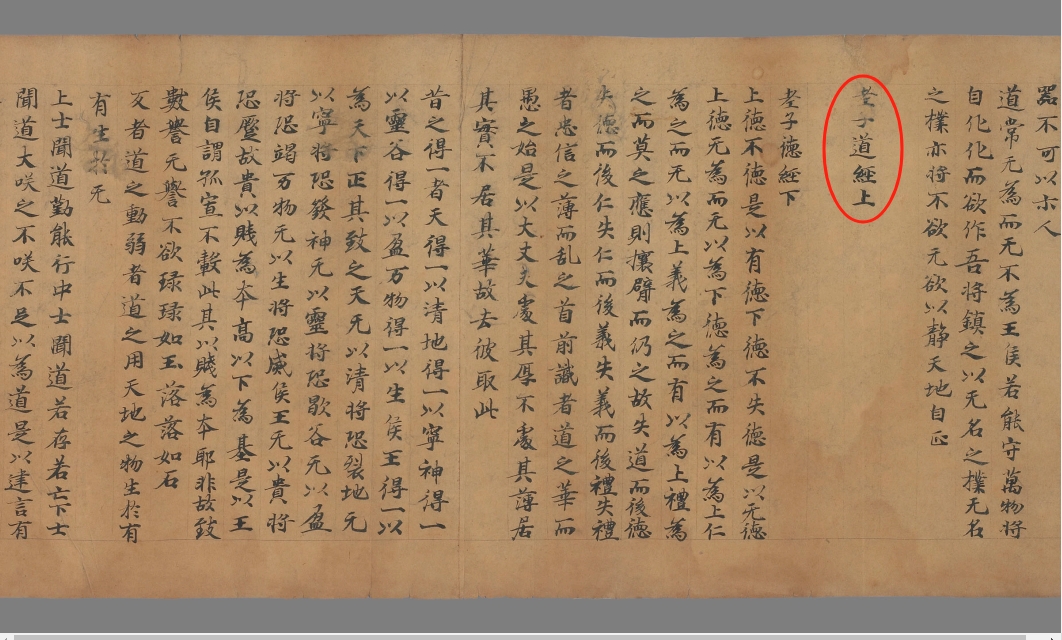 器不可以示人
道常无為而无不為王侯若能守萬物将
自化化而欲作吾将鎮之以无名之樸无名
之樸亦将不欲无欲以静天地自正
老子道經上
老子德經下
上德不德是以有德下德不失德是以无德
上德无為而无以為下德為之而有以為上仁
為之而无以為上義為之而有以為上禮為
之而莫之應則攘臂而仍之故失道而後德
失德而後仁失仁而後義失義而後禮失禮
者忠信之薄而乱之首前識者道之華而
愚之始是以大丈夫處其厚不處其薄居
其實不居其華故去彼取此
昔之得一者天得一以清地得一以寧神得一
以靈谷得一以盈万物得一以生侯王得一以
為天下正其致之天无以清将恐裂地无
以寧将恐發神无以靈将恐歇谷无以盈
将恐竭万物无以生将恐威侯王无以貴将
恐蹷故貴以賤為本高以下為基是以王
侯自謂孤寡不轂此其以賤為本耶非故致
數譽无譽不欲琭琭如玉落落如石
反者道之動弱者道之用天地之物生於有
有生於无
上士聞道勤能行中士聞道若存若亡下士
聞道大咲之不咲不足以為道是以建言有